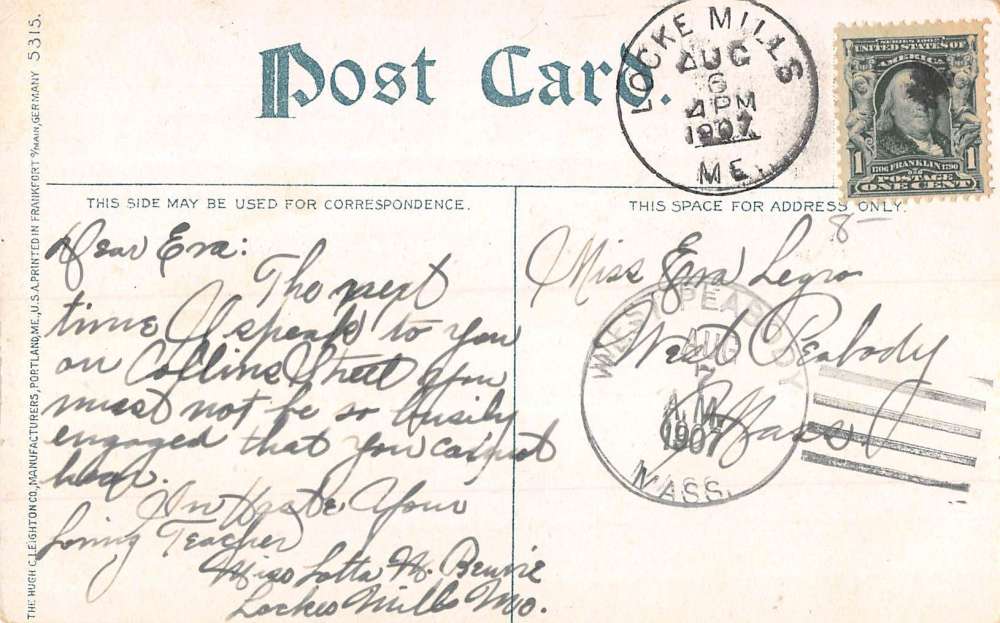 THE HUGH C. LEIGHTON CO., MANUFACTURERS, PORTLAND, ME., U.S.A. PRINTED IN FRANKFORT o/MAIN, GERMANY 5315.
Post Card.
LOCKE MILLS
AUG
6
4 PM
1907
ME.
SERIES 1902
UNITED STATES OF
AMERICA
1706 FRANKLIN 1790
1 POSTAGE 1
ONE CENT
THIS SIDE MAY BE USED FOR CORRESPONDENCE.
Dear Eva:
The next
time I speak to you
on Collins Street you
must not be so busily
engaged that you cannot
hear.
In Haste, Your
Loving Teacher
Miss Lotta M.
Lockes Mills Me.
THIS SPACE FOR ADDRESS ONLY.
8-
Miss Eva Legro
West Peabody
Mass.
WEST PEABODY
AUG
7
A.M.
1907
MASS.